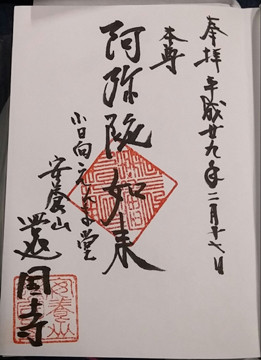 奉拝 平成廿九年二月十七日
本尊
阿弥陀如来
小日向えんま堂
安養山
還国寺